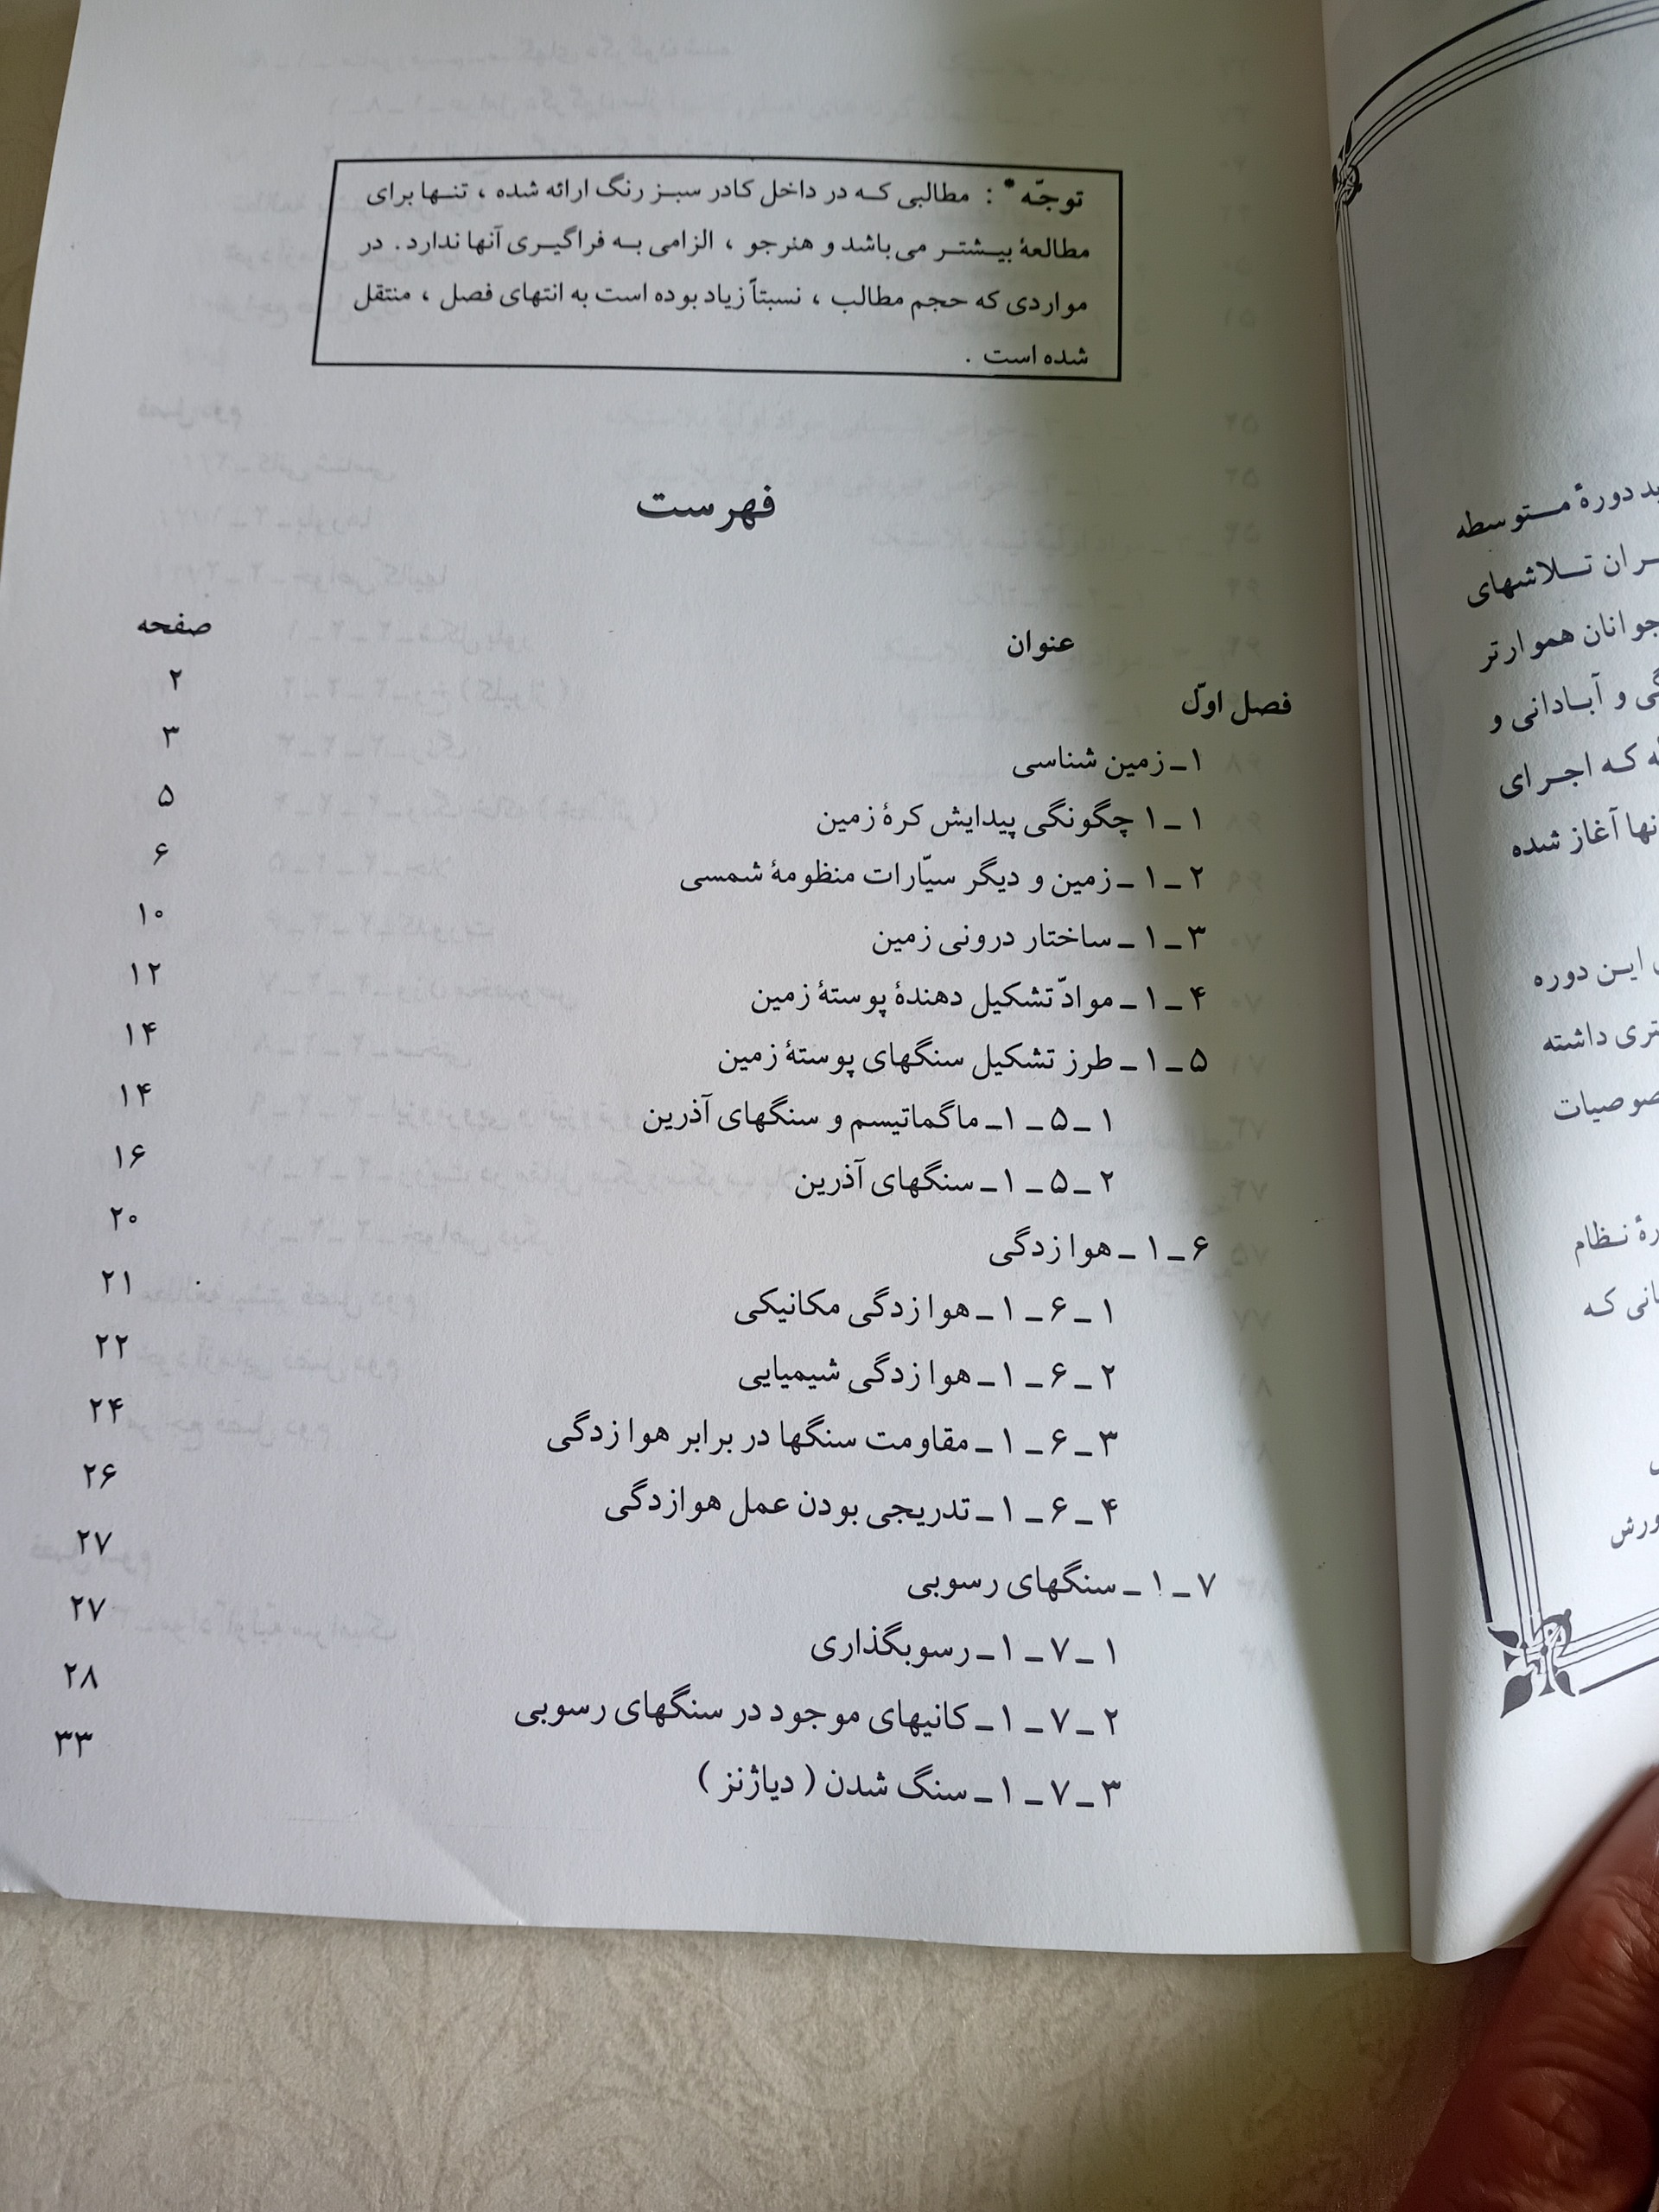 توجّه* : مطالبی که در داخل کادر سبز رنگ ارائه شده ، تنها برای
مطالعهٔ بیشتر می باشد و هنرجو ، الزامی به فراگیری آنها ندارد. در
مواردی که حجم مطالب ، نسبتاً زیاد بوده است به انتهای فصل ، منتقل
شده است .
فهرست
عنوان صفحه
فصل اوّل ۲
۱ـ زمین شناسی ۳
۱ـ۱ چگونگی پیدایش کرهٔ زمین ۵
۲ـ۱ـ زمین و دیگر سیّارات منظومهٔ شمسی ۶
۳ـ۱ـ ساختار درونی زمین ۱۰
۴ـ۱ـ موادّ تشکیل دهندهٔ پوستهٔ زمین ۱۲
۵ـ۱ـ طرز تشکیل سنگهای پوستهٔ زمین ۱۴
۱ـ۵ـ۱ـ ماگماتیسم و سنگهای آذرین ۱۴
۲ـ۵ـ۱ـ سنگهای آذرین ۱۶
۶ـ۱ـ هوازدگی ۲۰
۱ـ۶ـ۱ـ هوازدگی مکانیکی ۲۱
۲ـ۶ـ۱ـ هوازدگی شیمیایی ۲۲
۳ـ۶ـ۱ـ مقاومت سنگها در برابر هوازدگی ۲۴
۴ـ۶ـ۱ـ تدریجی بودن عمل هوازدگی ۲۶
۷ـ۱ـ سنگهای رسوبی ۲۷
۱ـ۷ـ۱ـ رسوبگذاری ۲۷
۲ـ۷ـ۱ـ کانیهای موجود در سنگهای رسوبی ۲۸
۳ـ۷ـ۱ـ سنگ شدن ( دیاژنز ) ۳۳
دورهٔ متوسطه
تلاشهای
جوانان هموارتر
و آبادانی و
که اجرای
آغاز شده
این دوره
داشته
نظام
که